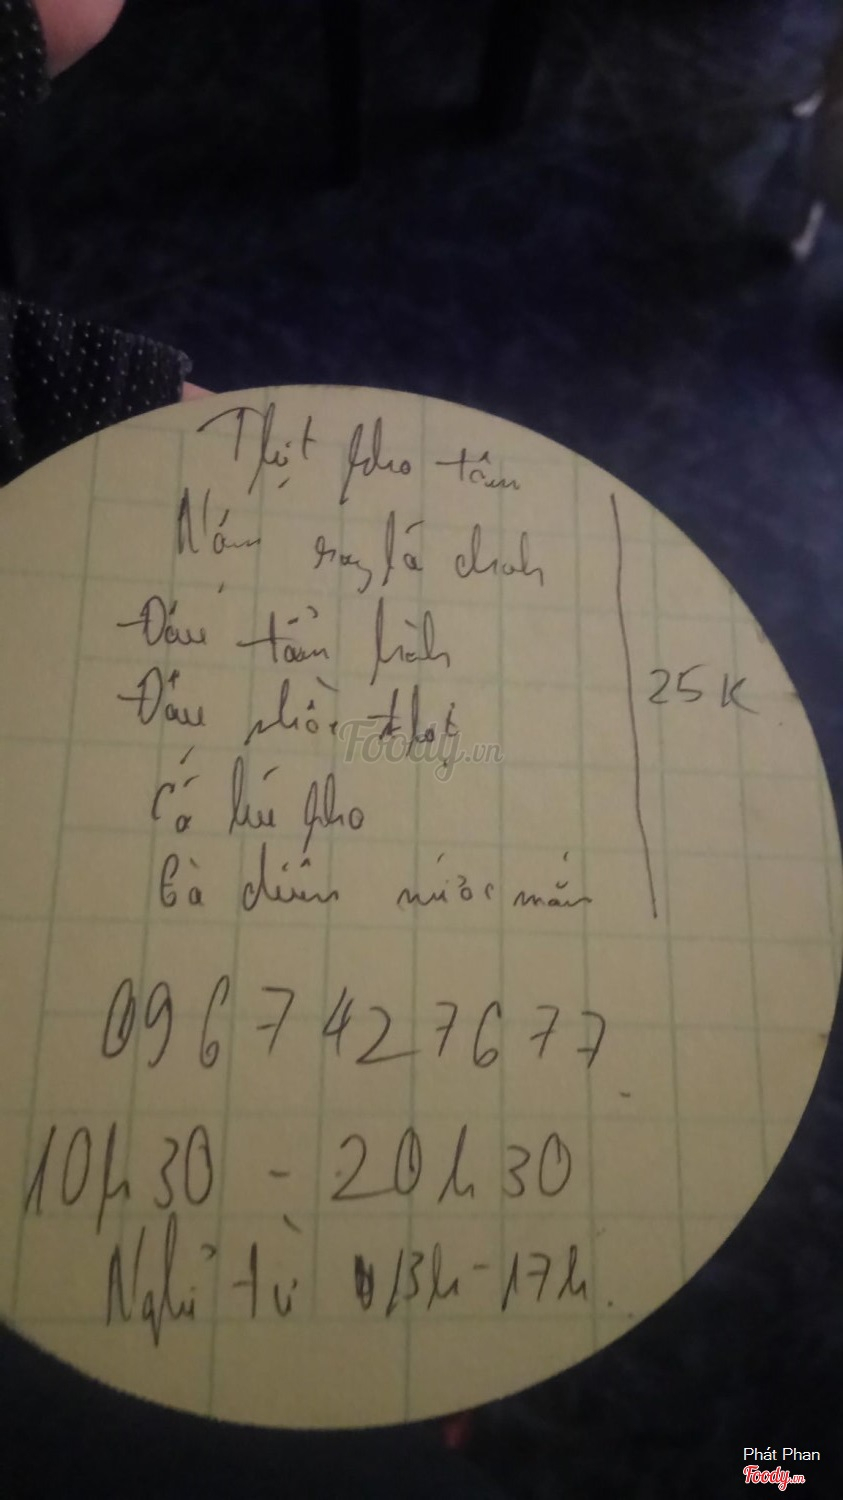 Thịt kho tàu
Nấm xay lá chanh
Đậu tẩm hành
Đậu nhồi thịt
Cá hú kho
Cà chiên nước mắm
25K
Foody.vn
0967427677
10h30 - 20h30
Nghỉ từ 13h-17h.
Phát Phan
Foody.vn